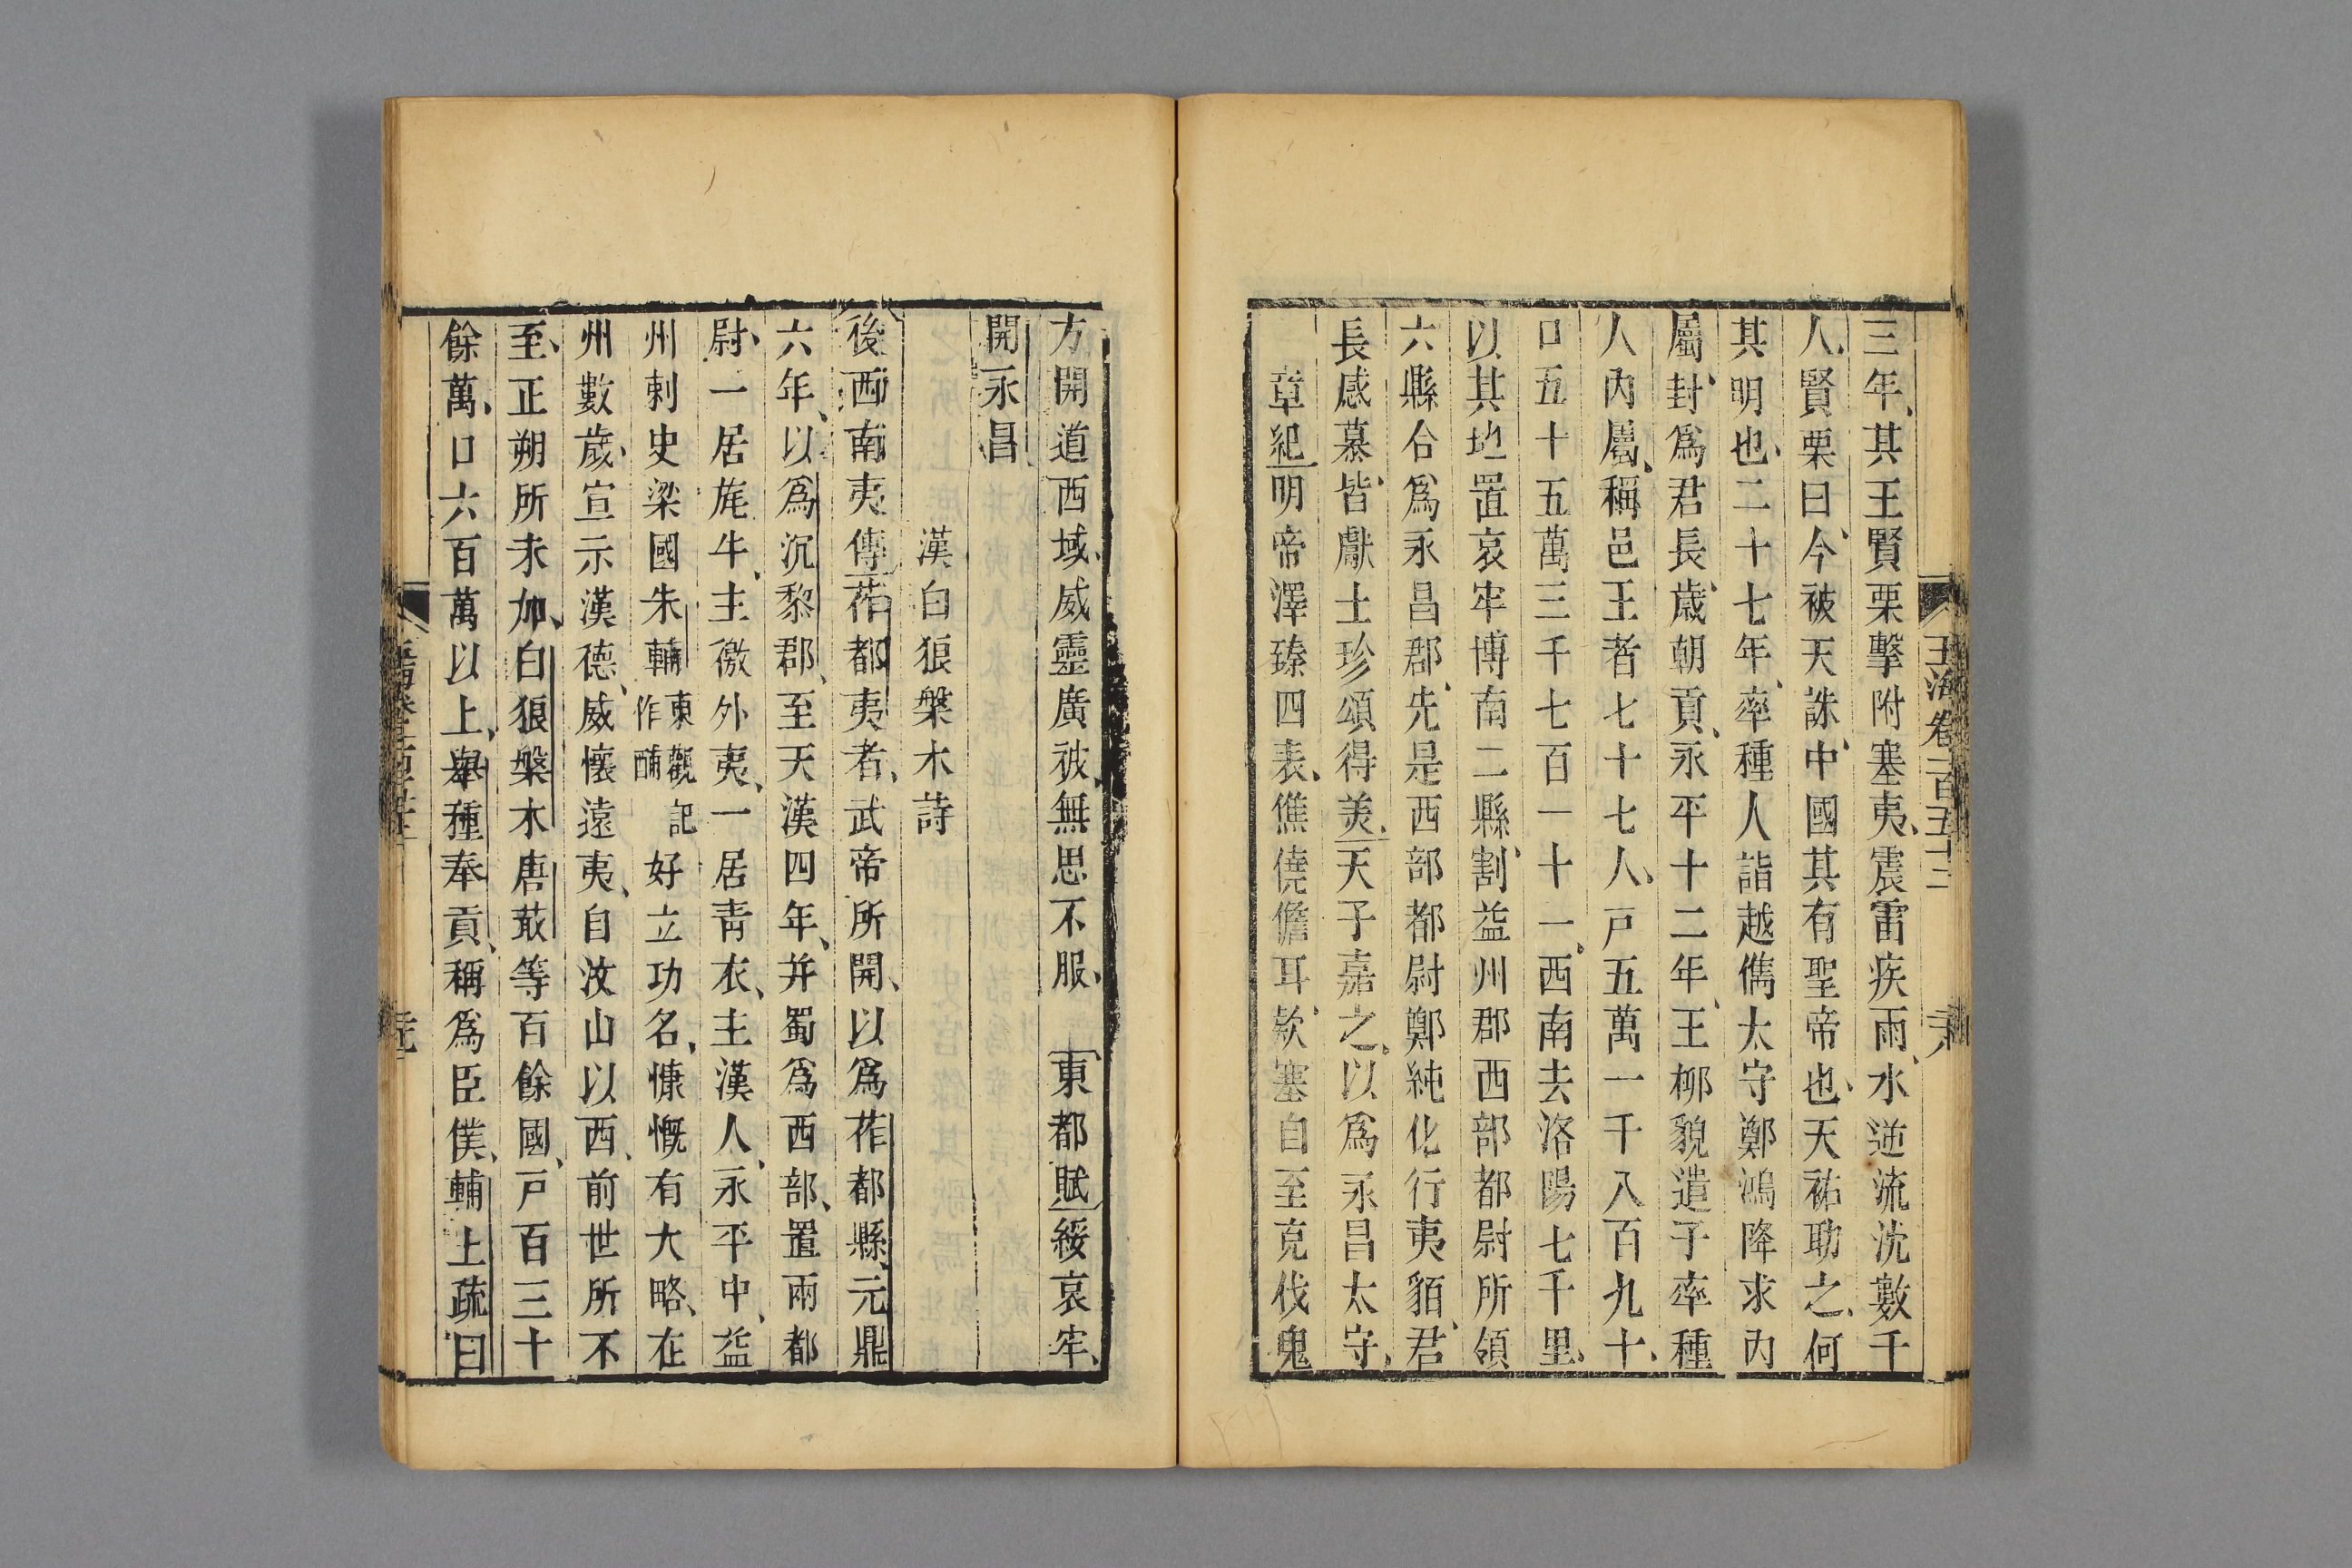 玉海卷一百五十三
三年其王賢栗擊附塞夷震雷疾雨水逆流沈數千
人賢栗曰今被天誅中國其有聖帝也天祐助之何
其明也二十七年率種人詣越儁太守鄭鴻降求内
屬封爲君長歲朝貢永平十二年王柳貌遣子率種
人内屬稱邑王者七十七人戸五萬一千八百九十
口五十五萬三千七百一十一西南去洛陽七千里
以其地置哀牢博南二縣割益州郡西部都尉所領
六縣合爲永昌郡先是西部都尉鄭純化行夷貊君
長感慕皆獻土珍頌得美天子嘉之以爲永昌太守
章紀明帝澤臻四表僬僥儋耳欵塞自至克伐鬼
方開道西域威靈廣被無思不服 東都賦綏哀牢
開永昌
漢白狼槃木詩
後西南夷傳莋都夷者武帝所開以爲莋都縣元鼎
六年以爲沉黎郡至天漢四年并蜀爲西部置兩都
尉一居旄牛主徼外夷一居青衣主漢人永平中益
州刺史梁國朱輔東觀記作酺好立功名慷慨有大略在
州數歲宣示漢德威懷遠夷自汶山以西前世所不
至正朔所未加白狼槃木唐菆等百餘國戸百三十
餘萬口六百萬以上舉種奉貢稱爲臣僕輔上疏曰